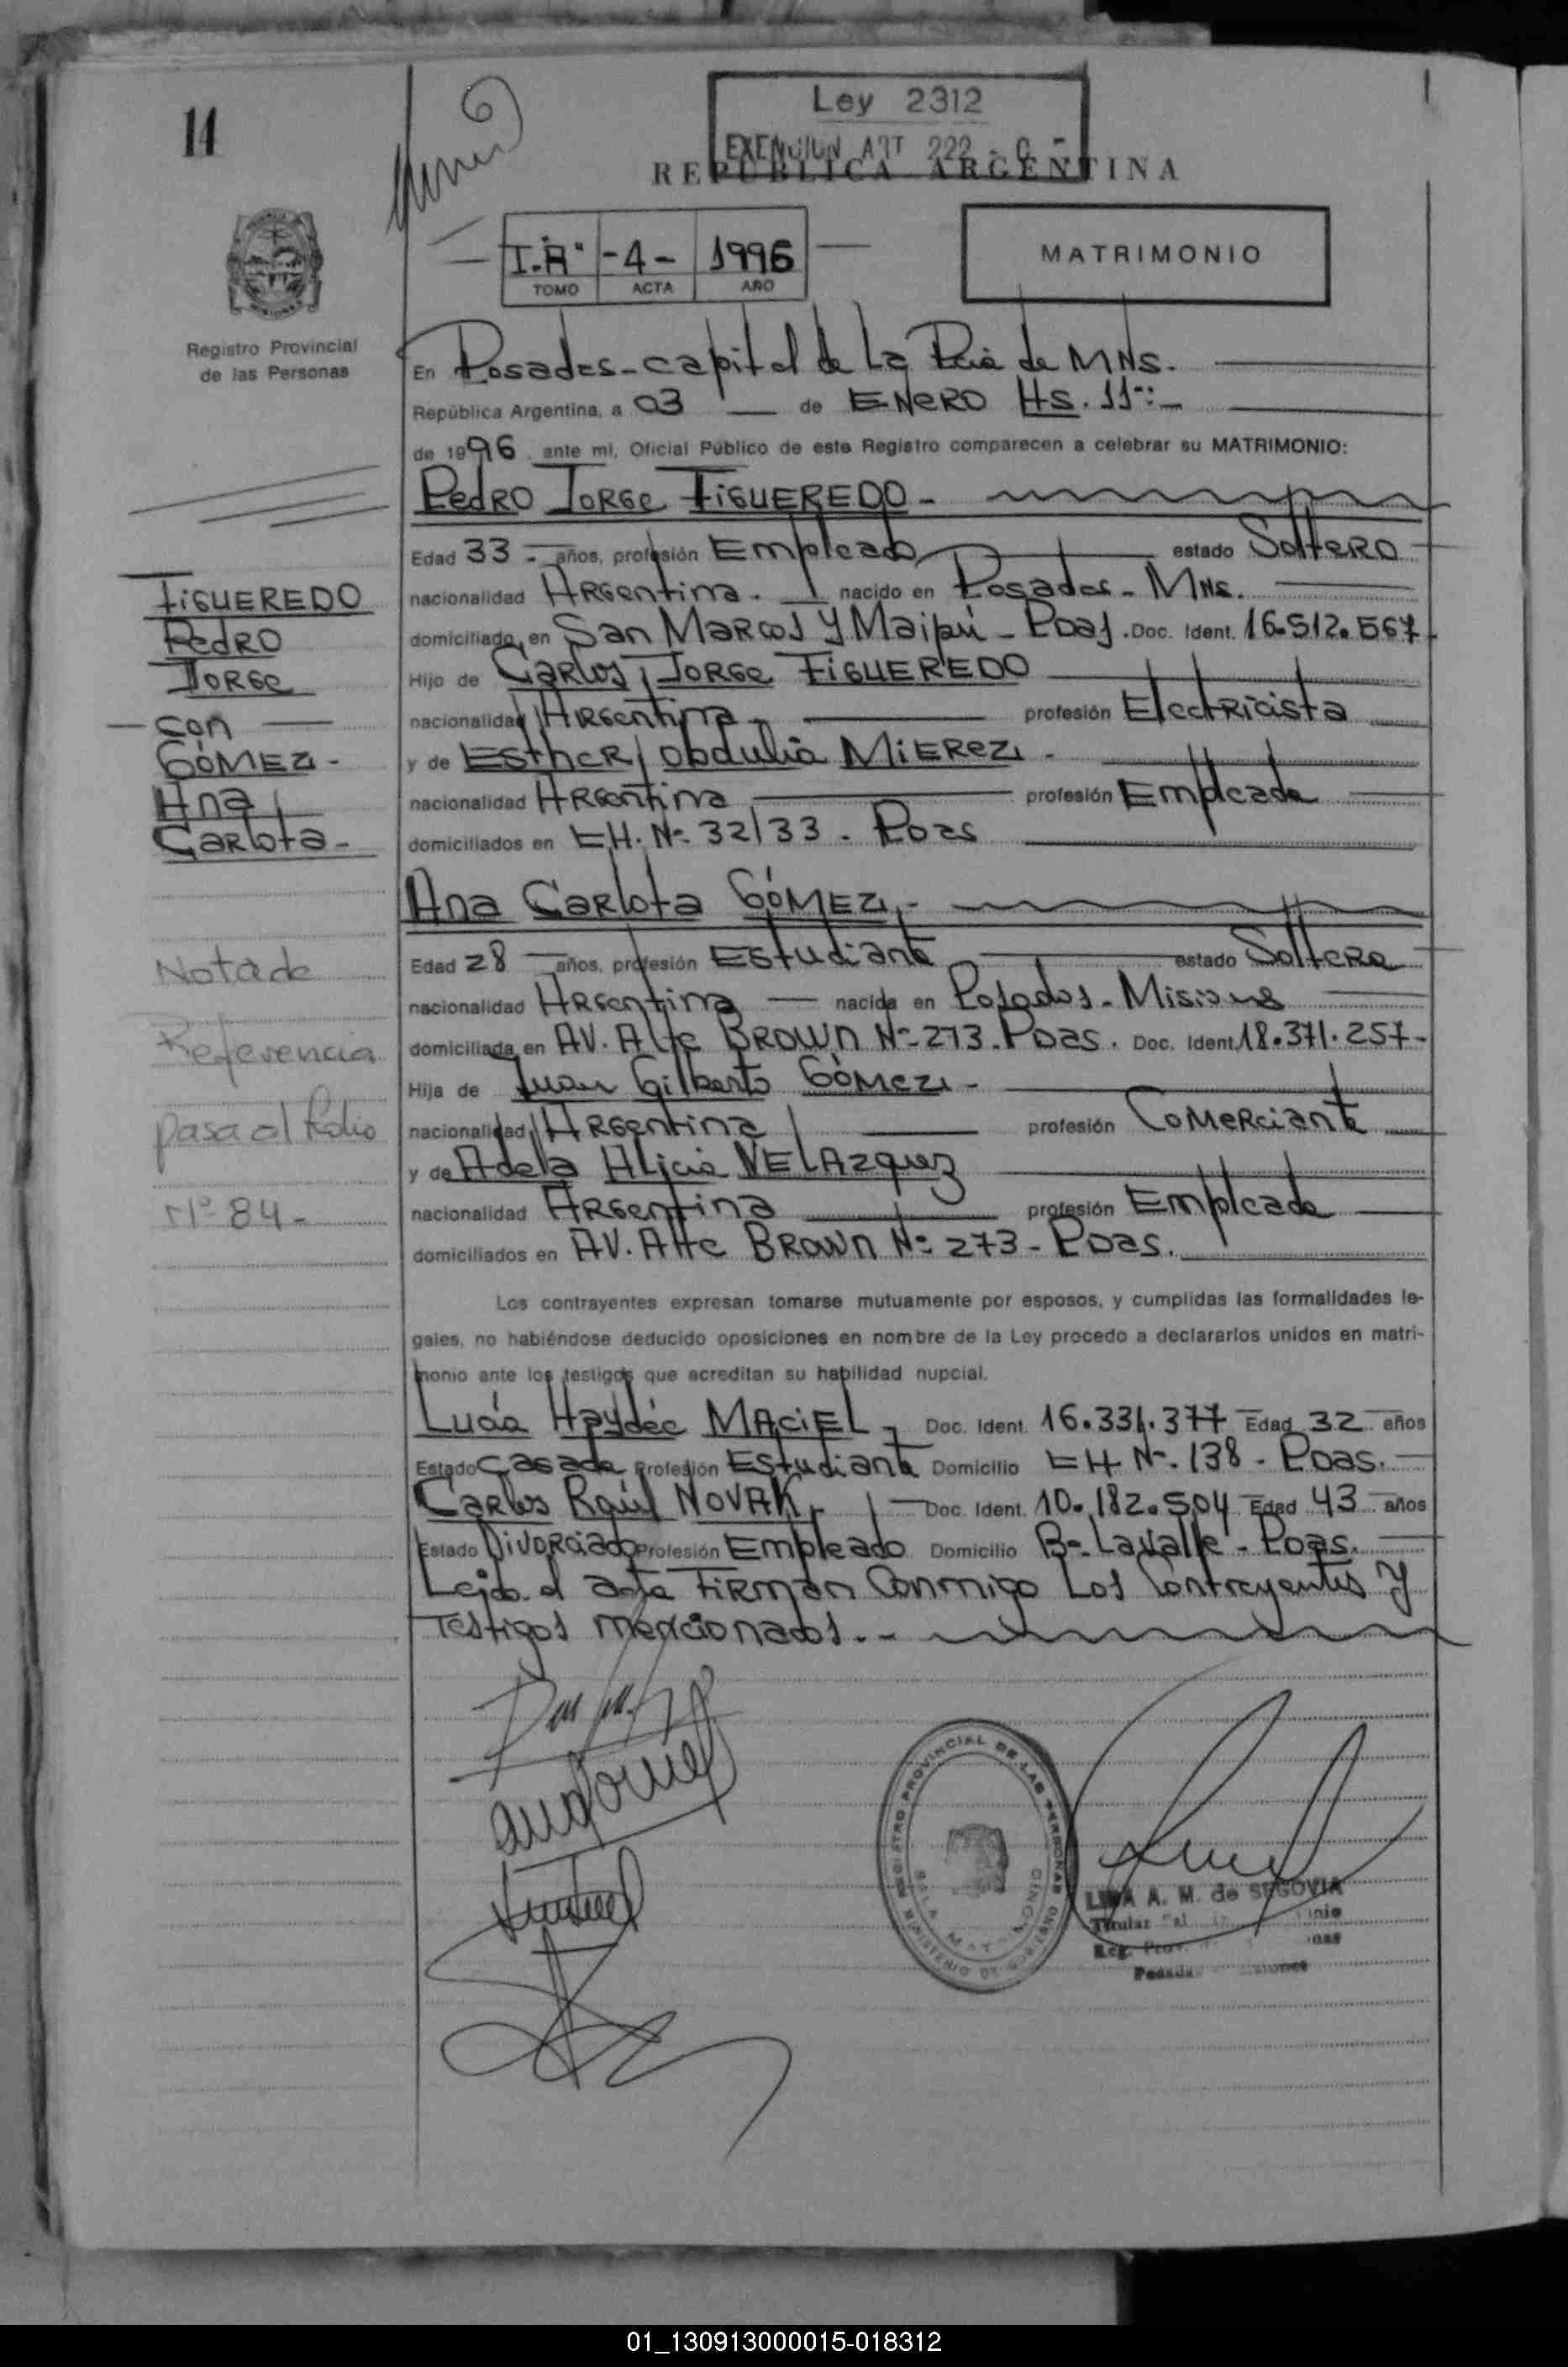 14
Ley 2312
EXENCION ART 222
REPUBLICA ARGENTINA
I."A" -4- 1996
TOMO ACTA AÑO
MATRIMONIO
Registro Provincial
de las Personas
En Posadas-capital de La Pcia de MNS.
República Argentina, a 03 de ENERO Hs. 11
de 1996 ante mí, Oficial Público de este Registro comparecen a celebrar su MATRIMONIO:
Pedro Jorge FIGUEREDO-
Edad 33- años, profesión Empleado estado Soltero
nacionalidad Argentina. nacido en Posadas-MNS.
domiciliado en San Marcos y Maipú-Pdas. Doc. Ident. 16.512.567
Hijo de Carlos Jorge FIGUEREDO
nacionalidad Argentina- profesión Electricista
y de Esther Obdulia MIEREZ-
nacionalidad Argentina profesión Empleada
domiciliados en CH. Nº 32/33-Pdas
Ana Carlota GÓMEZ.-
Edad 28 años, profesión Estudiante estado Soltera
nacionalidad Argentina nacida en Posadas-Misiones
domiciliada en AV. Alte BROWN Nº 273-Pdas. Doc. Ident. 18.371.257-
Hija de Juan Gilberto GÓMEZ-
nacionalidad Argentina profesión Comerciante
y de Adela Alicia VELAZquez
nacionalidad Argentina profesión Empleada
domiciliados en AV. Alte BROWN Nº 273-Pdas.
Los contrayentes expresan tomarse mutuamente por esposos, y cumplidas las formalidades le-
gales, no habiéndose deducido oposiciones en nombre de la Ley procedo a declararlos unidos en matri-
monio ante los testigos que acreditan su habilidad nupcial.
Lucía Haydée MACIEL, Doc. Ident. 16.331.377 Edad 32 años
Estado Casada Profesión Estudiante Domicilio CH Nº 138-Pdas.
Carlos Raúl NOVAK, Doc. Ident. 10.182.504 Edad 43 años
Estado Divorciado Profesión Empleado Domicilio Bº Lavalle-Pdas.
Leída el acta firman conmigo Los Contrayentes y
Testigos mencionados.-
FIGUEREDO
Pedro
Jorge
con
GÓMEZ-
Ana
Carlota-
Nota de
Referencia
pasa al folio
Nº 84-
REGISTRO PROVINCIAL DE LAS PERSONAS
MINISTERIO DE GOBIERNO
A. M. de SEGOVIA
Titular
01_130913000015-018312